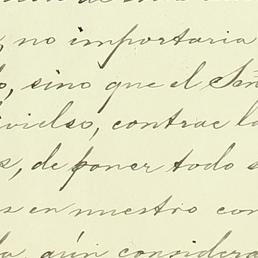 , no importaria
, sino que el Señ
ivielso, contrae la
s, de poner todo s
s en nuestro con
, aún considera